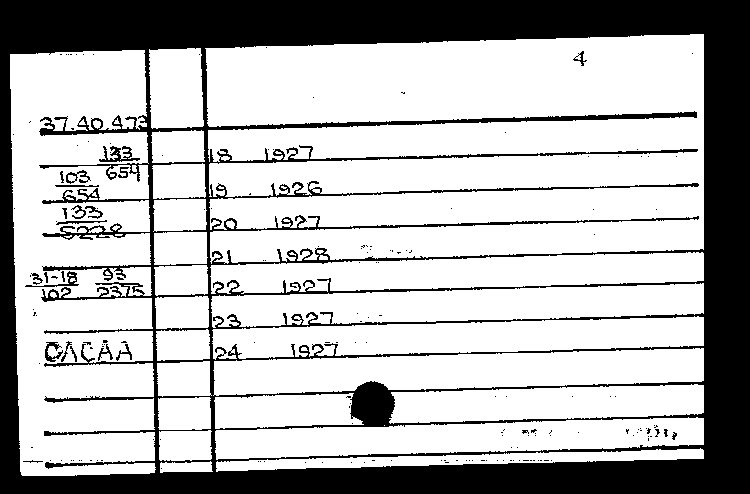 4
37.40.473
133
654 18 1927
103
654 19 1926
133
5228 20 1927
21 1928
31-18 93
102 2375 22 1927
23 1927
24 1927